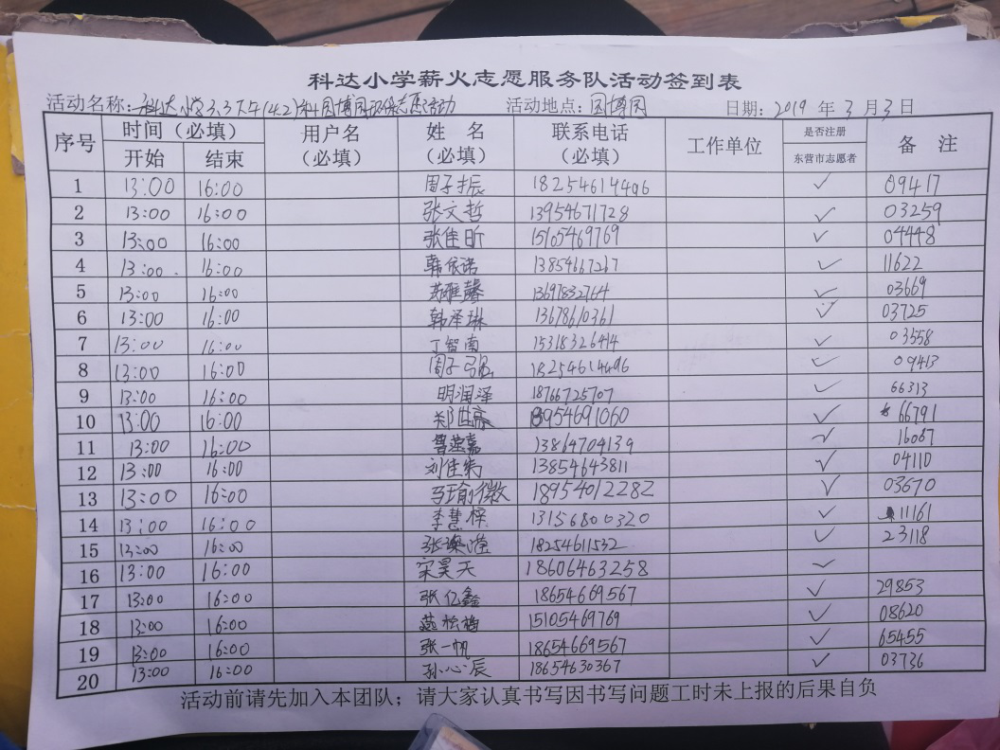 科达小学薪火志愿服务队活动签到表
活动名称: 科达小学3.3下午(4.2)和园博园环保志愿活动 活动地点: 园博园 日期: 2019 年 3 月 3 日
序号 时间（必填） 用户名 姓 名 联系电话 工作单位 是否注册 备 注
开始 结束 （必填） （必填） （必填） 东营市志愿者
1 13:00 16:00 周子振 18254614496 ✓ 09417
2 13:00 16:00 张文哲 13954671728 ✓ 03259
3 13:00 16:00 张佳昕 15105469769 ✓ 04448
4 13:00 16:00 韩依诺 13854667267 ✓ 11622
5 13:00 16:00 雅馨 13697832764 ✓ 03669
6 13:00 16:00 韩泽琳 13678610361 ✓ 03725
7 13:00 16:00 丁智南 15318326414 ✓ 03558
8 13:00 16:00 周子强 18254614496 ✓ 09413
9 13:00 16:00 明润泽 18766725707 ✓ 66313
10 13:00 16:00 郑世 18954691060 ✓ 66791
11 13:00 16:00 曹嘉 13864704139 ✓ 16067
12 13:00 16:00 刘佳 13854643811 ✓ 04110
13 13:00 16:00 瑜 18954012282 ✓ 03670
14 13:00 16:00 李慧 13156800320 ✓ 11161
15 13:00 16:00 张 18254611532 ✓ 23118
16 13:00 16:00 宋昊天 18606463258 ✓
17 13:00 16:00 张亿鑫 18654669567 ✓ 29853
18 13:00 16:00 15105469769 ✓ 08620
19 13:00 16:00 张一帆 18654669567 ✓ 65455
20 13:00 16:00 孙心辰 18654630367 ✓ 03736
活动前请先加入本团队；请大家认真书写因书写问题工时未上报的后果自负